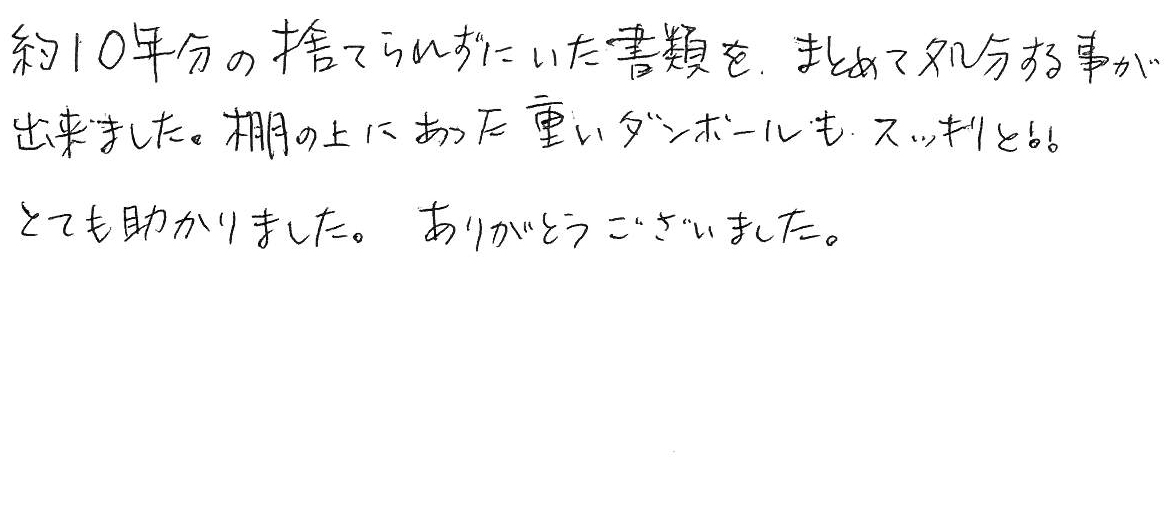 約10年分の捨てられずにいた書類を、まとめて処分する事が
出来ました。棚の上にあった重いダンボールも スッキリと!!
とても助かりました。 ありがとうございました。